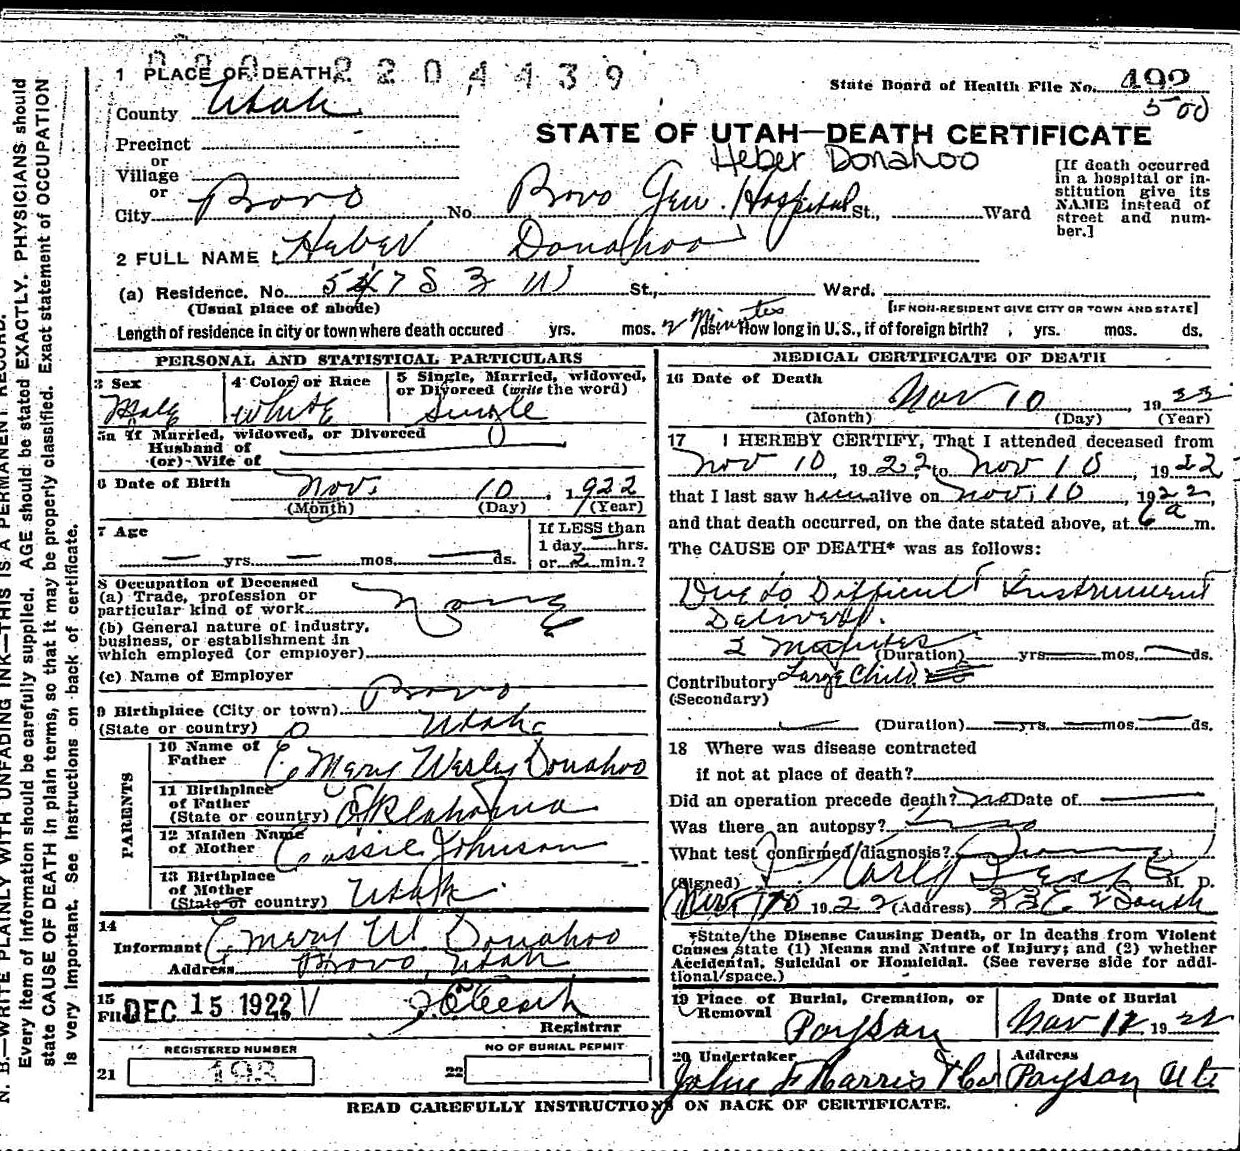 2204439
1 PLACE OF DEATH
State Board of Health File No. 492
500
County Utah
STATE OF UTAH—DEATH CERTIFICATE
Heber Donahoo
Precinct
or
Village
or
City Provo No. Provo Gen. Hospital St., Ward
[If death occurred
in a hospital or in-
stitution give its
NAME instead of
street and num-
ber.]
2 FULL NAME Heber Donahoo
(a) Residence. No. 547 S 3 W St., Ward.
(Usual place of abode) [IF NON-RESIDENT GIVE CITY OR TOWN AND STATE]
Length of residence in city or town where death occured yrs. mos. 2 Minutes ds. How long in U.S., if of foreign birth? yrs. mos. ds.
PERSONAL AND STATISTICAL PARTICULARS
3 Sex
Male
4 Color or Race
White
5 Single, Married, widowed,
or Divorced (write the word)
Single
5a If Married, widowed, or Divorced
Husband of
(or) Wife of
6 Date of Birth Nov. 10, 1922
(Month) (Day) (Year)
7 Age
— yrs. — mos. — ds.
If LESS than
1 day hrs.
or 2 min.?
8 Occupation of Deceased
(a) Trade, profession or
particular kind of work None
(b) General nature of industry,
business, or establishment in
which employed (or employer)
(c) Name of Employer
9 Birthplace (City or town) Provo
(State or country) Utah
PARENTS
10 Name of
Father Emery Wesley Donahoo
11 Birthplace
of Father
(State or country) Oklahoma
12 Maiden Name
of Mother Cassie Johnson
13 Birthplace
of Mother
(State or country) Utah
14
Informant Emery W. Donahoo
Address Provo, Utah
15
Filed DEC 15 1922
Registrar
REGISTERED NUMBER
21 193
NO OF BURIAL PERMIT
22
MEDICAL CERTIFICATE OF DEATH
16 Date of Death
Nov 10, 1922
(Month) (Day) (Year)
17 I HEREBY CERTIFY, That I attended deceased from
Nov 10, 1922, to Nov 10, 1922
that I last saw him alive on Nov. 10, 1922
and that death occurred, on the date stated above, at 6 a m.
The CAUSE OF DEATH* was as follows:
Due to Difficult Instrument
Delivery.
2 Minutes (Duration) yrs. mos. ds.
Contributory Large Child
(Secondary)
(Duration) yrs. mos. ds.
18 Where was disease contracted
if not at place of death?
Did an operation precede death? no Date of
Was there an autopsy? no
What test confirmed diagnosis?
(Signed) M. D.
Nov 10 1922 (Address) 22 E 2 South
*State the Disease Causing Death, or in deaths from Violent
Causes, state (1) Means and Nature of Injury; and (2) whether
Accidental, Suicidal or Homicidal. (See reverse side for addi-
tional space.)
19 Place of Burial, Cremation, or
Removal
Payson
Date of Burial
Nov 11 1922
20 Undertaker
John F Harris & Co
Address
Payson Ut
READ CAREFULLY INSTRUCTIONS ON BACK OF CERTIFICATE.
N. B.—WRITE PLAINLY WITH UNFADING INK—THIS IS A PERMANENT RECORD.
Every item of information should be carefully supplied. AGE should be stated EXACTLY. PHYSICIANS should
state CAUSE OF DEATH in plain terms, so that it may be properly classified. Exact statement of OCCUPATION
is very important. See Instructions on back of certificate.